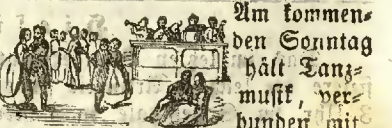 Am kommen⸗
den Sonntag
hält Tanz⸗
musik, ver⸗
bunden mit